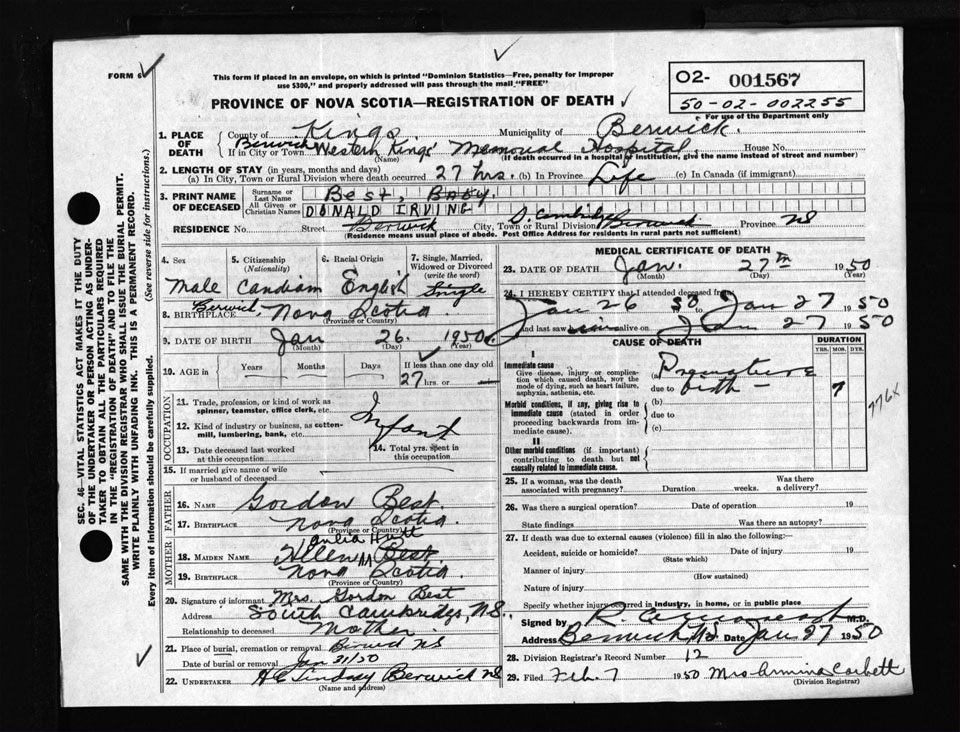 FORM 6
This form if placed in an envelope, on which is printed "Dominion Statistics—Free, penalty for improper
use $300," and properly addressed will pass through the mail "FREE"
PROVINCE OF NOVA SCOTIA—REGISTRATION OF DEATH
O2- 001567
50-02-002255
For use of the Department only
SEC. 46—VITAL STATISTICS ACT MAKES IT THE DUTY
OF THE UNDERTAKER OR PERSON ACTING AS UNDER-
TAKER TO OBTAIN ALL THE PARTICULARS REQUIRED
IN THE "REGISTRATION OF DEATH" AND TO FILE THE
SAME WITH THE DIVISION REGISTRAR WHO SHALL ISSUE THE BURIAL PERMIT.
WRITE PLAINLY WITH UNFADING INK. THIS IS A PERMANENT RECORD.
Every item of information should be carefully supplied. (See reverse side for instructions.)
1. PLACE OF DEATH County of Kings Municipality of Berwick.
Berwick If in City or Town Western Kings' Memorial Hospital. House No.
(Name) (If death occurred in a hospital or institution, give the name instead of street and number)
2. LENGTH OF STAY (in years, months and days)
(a) In City, Town or Rural Division where death occurred 27 hrs. (b) In Province Life (c) In Canada (if immigrant)
3. PRINT NAME OF DECEASED
Surname or Last Name Best, Baby.
All Given or Christian Names DONALD IRVING
RESIDENCE No. Street Berwick City, Town or Rural Division S. Cambridge Berwick Province NS
(Residence means usual place of abode. Post Office Address for residents in rural parts not sufficient)
4. Sex Male
5. Citizenship (Nationality) Candiam
6. Racial Origin English
7. Single, Married, Widowed or Divorced (write the word) Single
8. BIRTHPLACE Berwick, Nova Scotia.
(Province or Country)
9. DATE OF BIRTH Jan 26. 1950.
(Month) (Day) (Year)
10. AGE in Years Months Days If less than one day old
27 hrs. or
OCCUPATION
11. Trade, profession, or kind of work as spinner, teamster, office clerk, etc.
12. Kind of industry or business, as cotten-mill, lumbering, bank, etc. Infant
13. Date deceased last worked at this occupation 14. Total yrs. spent in this occupation
15. If married give name of wife or husband of deceased
FATHER
16. NAME Gordon Best.
17. BIRTHPLACE Nova Scotia.
(Province or Country)
MOTHER
18. MAIDEN NAME Best
19. BIRTHPLACE Nova Scotia.
(Province or Country)
20. Signature of informant Mrs. Gordon Best
Address South Cambridge, N.S.
Relationship to deceased Mother
21. Place of burial, cremation or removal Berwick NS
Date of burial or removal Jan 31/50
22. UNDERTAKER Lindsay Berwick NS
(Name and address)
MEDICAL CERTIFICATE OF DEATH
23. DATE OF DEATH Jan. 27th 1950
(Month) (Day) (Year)
24. I HEREBY CERTIFY that I attended deceased from:
Jan 26 50 to Jan 27 1950
And last saw him alive on Jan 27 1950
CAUSE OF DEATH
DURATION
YRS. MOS. DYS.
I
Immediate cause
Give disease, injury or complication which caused death, NOT the mode of dying, such as heart failure, asphyxia, asthenia, etc.
(a) Premature
due to birth — 7
776x
Morbid conditions, if any, giving rise to immediate cause (stated in order proceeding backwards from immediate cause).
(b)
due to
(c)
II
Other morbid conditions (if important) contributing to death but not causally related to immediate cause.
25. If a woman, was the death associated with pregnancy? Duration weeks. Was there a delivery?
26. Was there a surgical operation? Date of operation 19
State findings Was there an autopsy?
27. If death was due to external causes (violence) fill in also the following:
Accident, suicide or homicide? Date of injury 19
(State which)
Manner of injury
(How sustained)
Nature of injury
Specify whether injury occurred in industry, in home, or in public place
Signed by R. M.D.
Address Berwick, N.S. Date Jan 27 1950
28. Division Registrar's Record Number 12
29. Filed Feb. 7 1950 Mrs Armina Corbett
(Division Registrar)